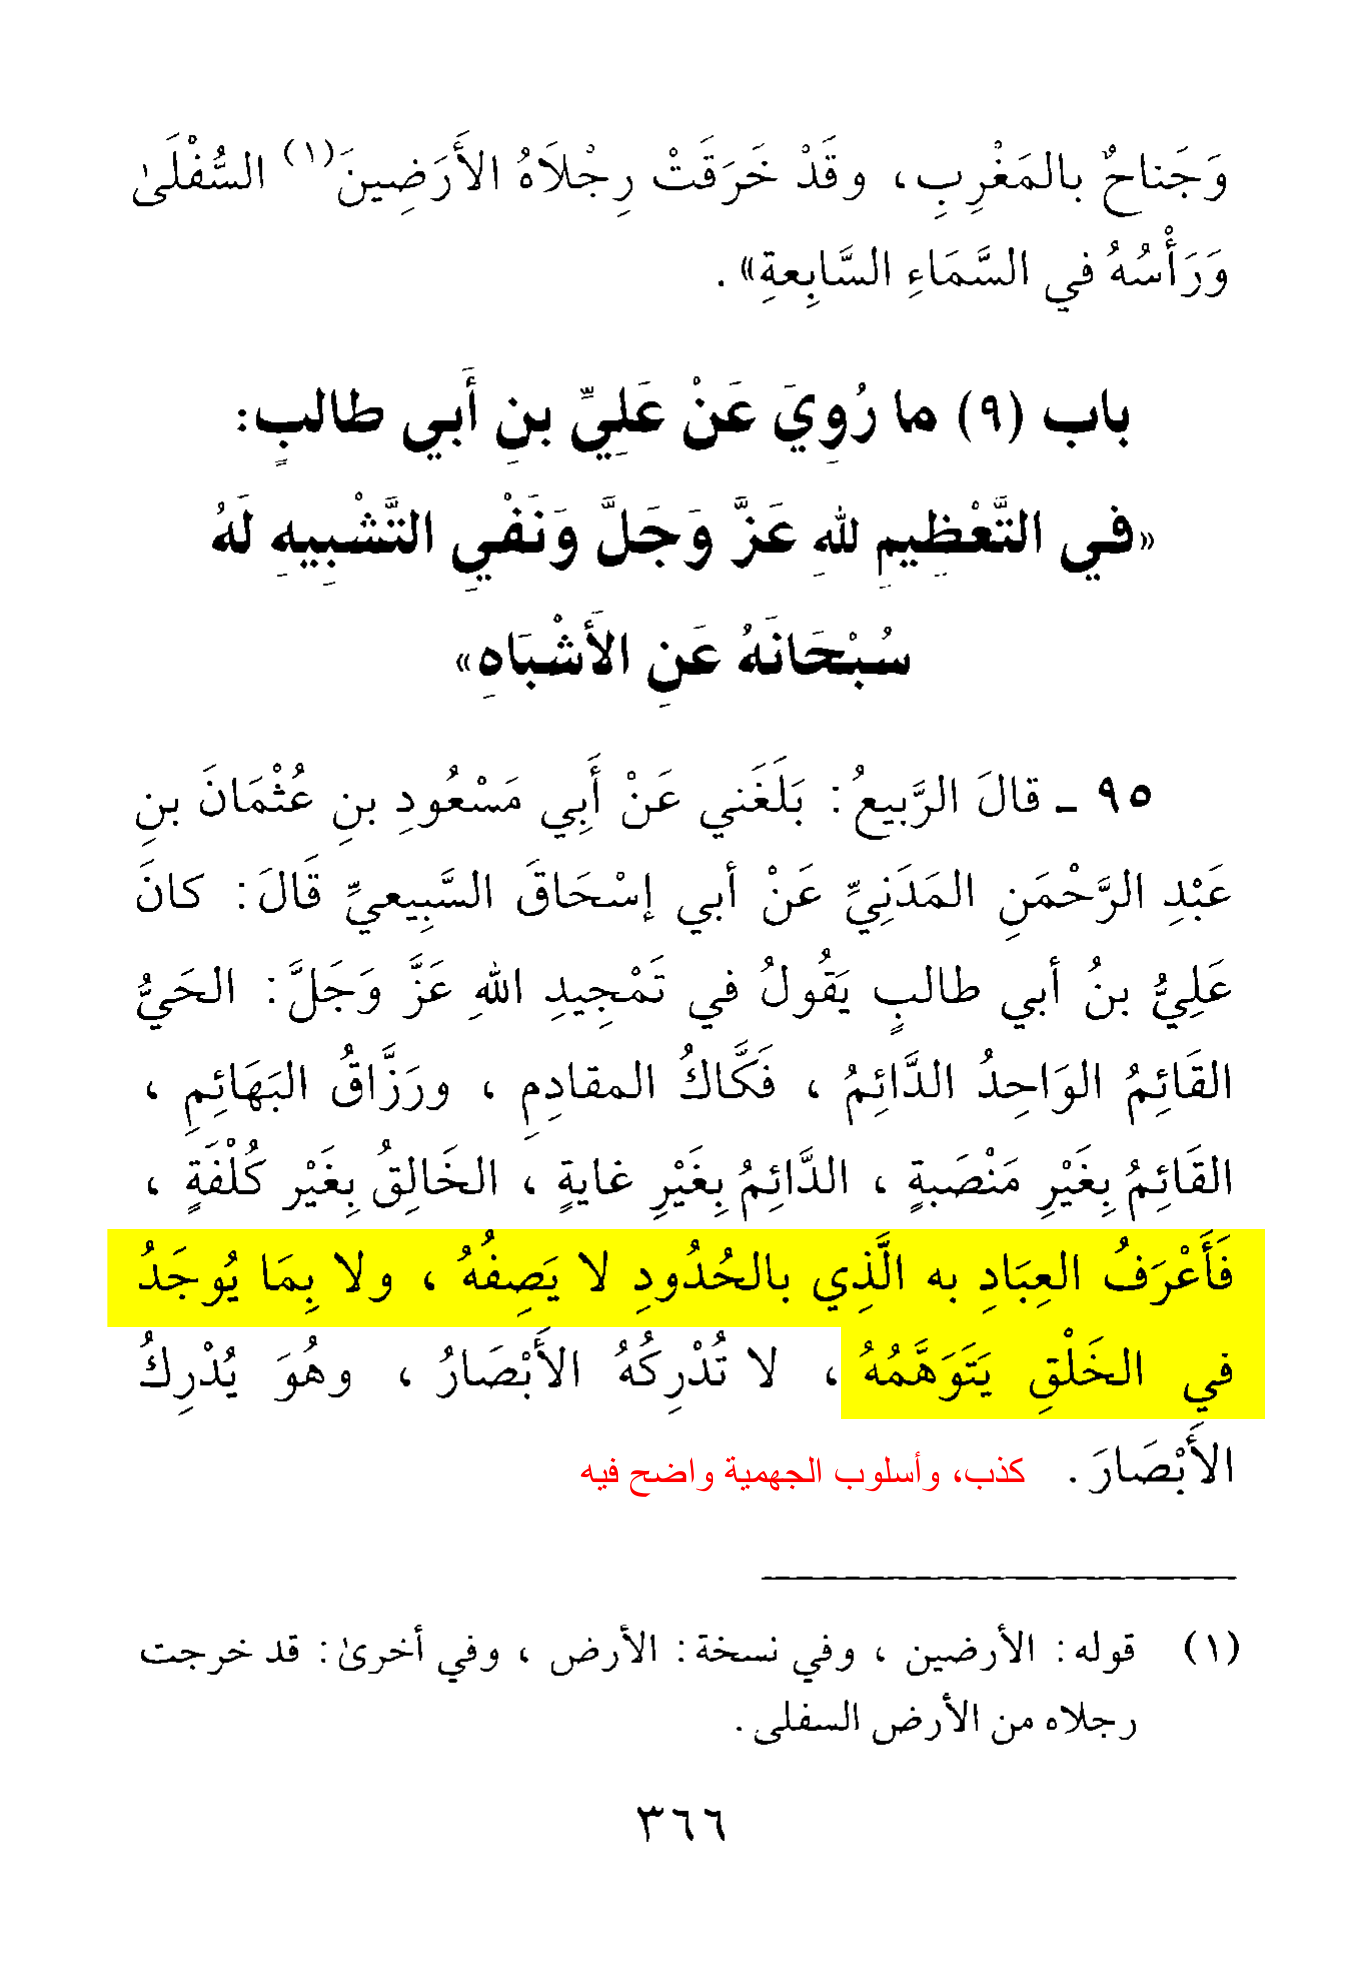 وَجَناحٌ بالمَغْرِبِ، وقَدْ خَرَقَتْ رِجْلَاهُ الأَرَضِينَ(١) السُّفْلَىٰ
وَرَأْسُهُ في السَّمَاءِ السَّابِعةِ».
باب (٩) ما رُوِيَ عَنْ عَلِيِّ بنِ أَبي طالبٍ:
«في التَّعْظِيمِ للهِ عَزَّ وَجَلَّ وَنَفْيِ التَّشْبِيهِ لَهُ
سُبْحَانَهُ عَنِ الأَشْبَاهِ»
٩٥ ـ قالَ الرَّبيعُ: بَلَغَني عَنْ أَبِي مَسْعُودِ بنِ عُثْمَانَ بنِ
عَبْدِ الرَّحْمَنِ المَدَنِيِّ عَنْ أبي إسْحَاقَ السَّبِيعيِّ قَالَ: كانَ
عَلِيُّ بنُ أبي طالبٍ يَقُولُ في تَمْجِيدِ اللهِ عَزَّ وَجَلَّ: الحَيُّ
القَائِمُ الوَاحِدُ الدَّائِمُ ، فَكَّاكُ المقادِمِ ، ورَزَّاقُ البَهَائِمِ ،
القَائِمُ بِغَيْرِ مَنْصَبةٍ ، الدَّائِمُ بِغَيْرِ غايةٍ ، الخَالِقُ بِغَيْر كُلْفَةٍ ،
فَأَعْرَفُ العِبَادِ به الَّذِي بالحُدُودِ لا يَصِفُهُ ، ولا بِمَا يُوجَدُ
في الخَلْقِ يَتَوَهَّمُهُ ، لا تُدْرِكُهُ الأَبْصَارُ ، وهُوَ يُدْرِكُ
الأَبْصَارَ. كذب، وأسلوب الجهمية واضح فيه
(١) قوله: الأرضين ، وفي نسخة: الأرض ، وفي أخرىٰ: قد خرجت
رجلاه من الأرض السفلى.
٣٦٦